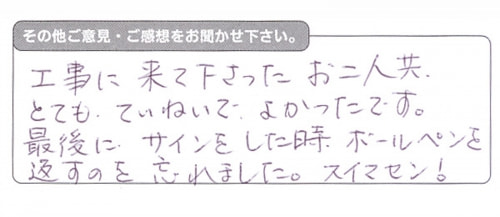 その他ご意見・ご感想をお聞かせ下さい。
工事に来て下さったお二人共、
とても、ていねいで、よかったです。
最後に、サインをした時、ボールペンを
返すのを忘れました。スイマセン!